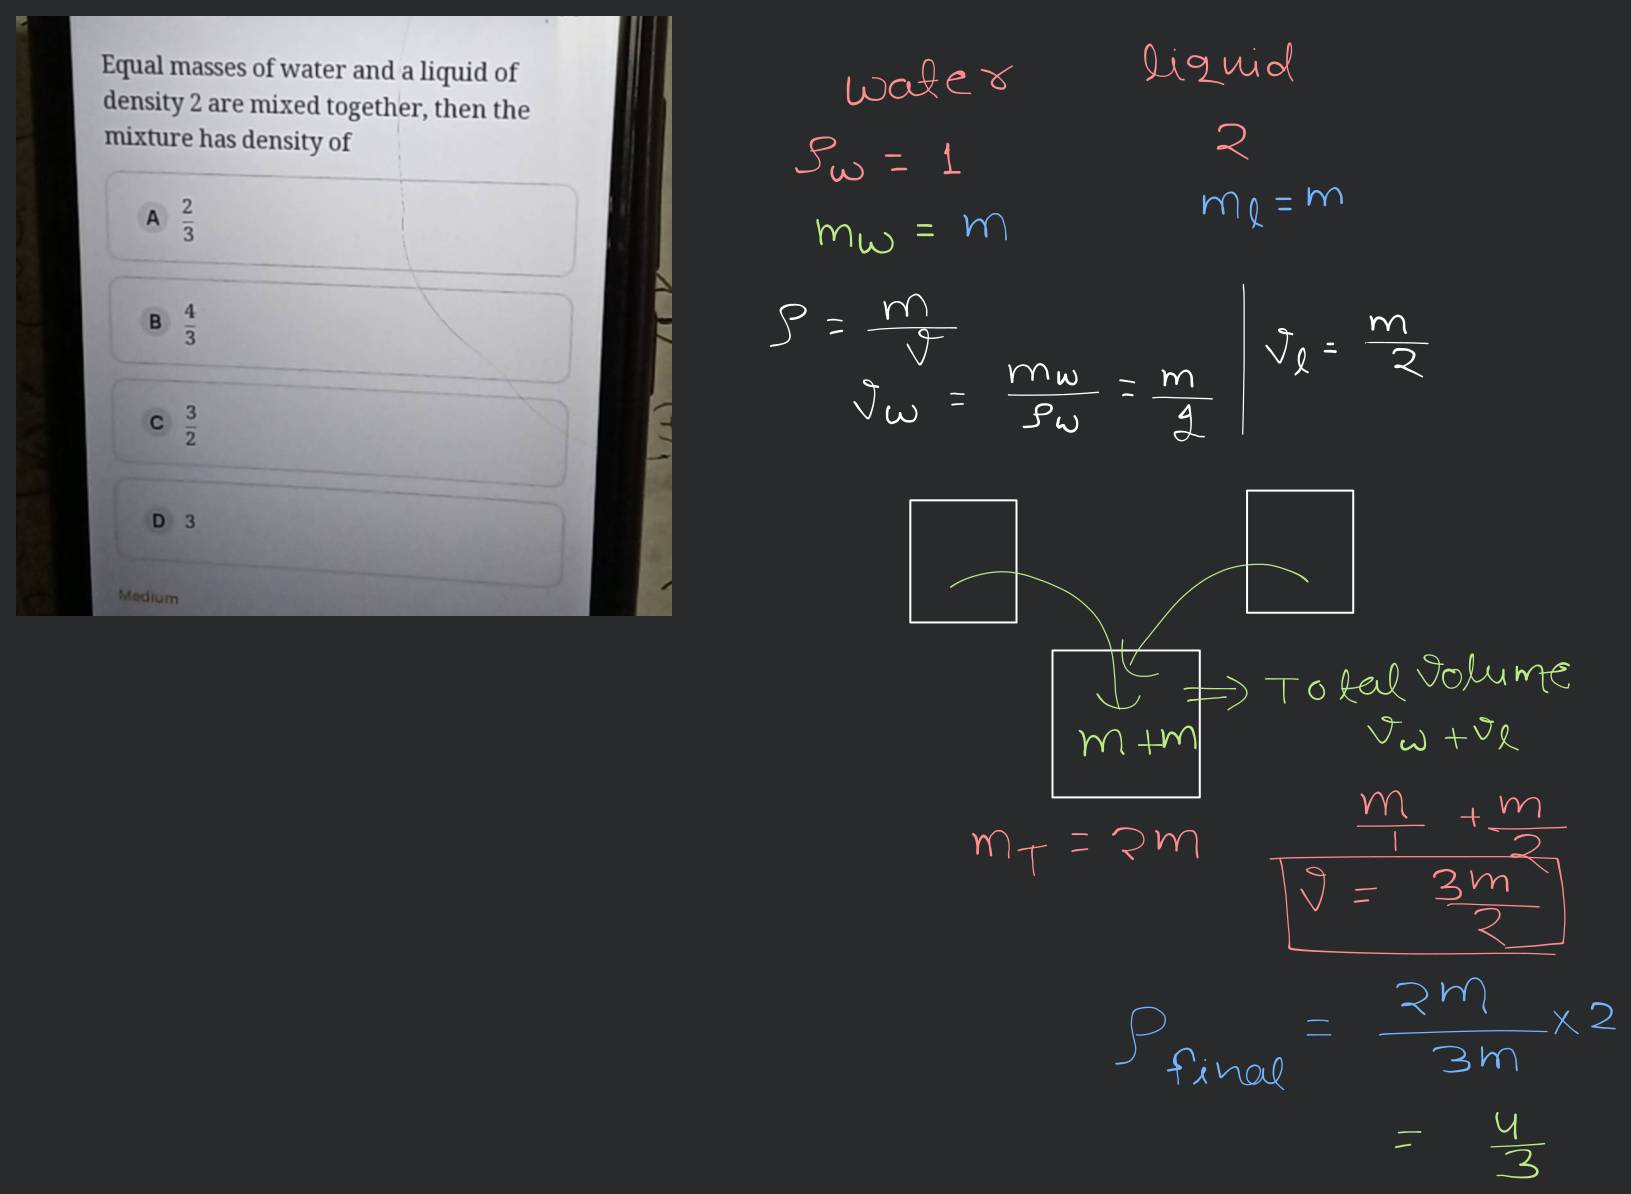 Equal masses of water and a liquid of
density 2 are mixed together, then the
mixture has density of
A 2/3
B 4/3
C 3/2
D 3
Medium
water liquid
ρw = 1 2
mw = m ml = m
ρ = m/v
vw = mw/ρw = m/1
vl = m/2
m+m ⇒ Total volume
vw + vl
mT = 2m
m/1 + m/2
v = 3m/2
ρfinal = 2m/3m × 2
= 4/3